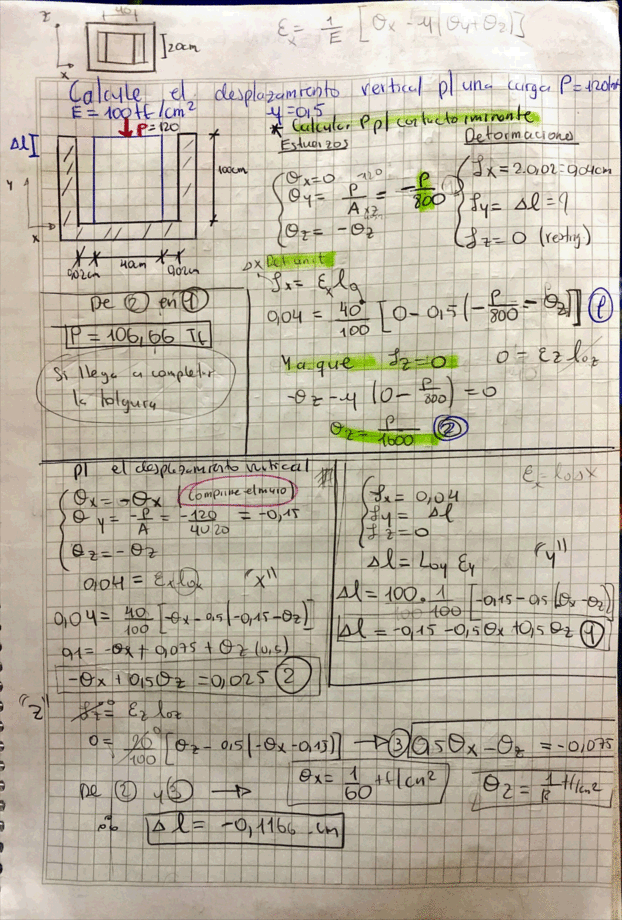 40
z
20cm
x
Ɛx = 1/E [σx - μ(σy + σz)]
Calcule el desplazamiento vertical p/ una carga P = 120tf
E = 100 tf/cm² μ = 0,5
P = 120
* Calcular P p/ contacto iminente
Esfuerzos
Deformaciones
Δl
100cm
y
x
0,02cm 40cm 0,02cm
σx = 0
σy = P/Axz = -P/800
120
σz = -σz
δx = 2·0,02 = 0,04cm
δy = Δl = ?
δz = 0 (restring)
Δx Def unit
δx = Ɛx lo
0,04 = 40/100 [0 - 0,5(-P/800 - σz)] ①
De ② en ①
P = 106,66 Tf
Si llega a completar
la holgura
Ya que δz = 0 0 = Ɛz loz
-σz - μ(0 - P/800) = 0
σz = P/1600 ②
p/ el desplazamiento vertical
σx = -σx (comprime el muro)
σy = -P/A = -120/40·20 = -0,15
σz = -σz
0,04 = Ɛx lox "x"
0,04 = 40/100 [-σx - 0,5(-0,15 - σz)]
0,1 = -σx + 0,075 + σz(0,5)
-σx + 0,5σz = 0,025 ②
δx = 0,04
δy = Δl
δz = 0
Δl = Loy Ɛy "y"
Δl = 100 · 1/100 [-0,15 - 0,5(σx - σz)]
Δl = -0,15 - 0,5σx + 0,5σz ①
"z" δz = Ɛz loz
0 = 20/100 [σz - 0,5(-σx - 0,15)] → ③ 0,5σx - σz = -0,075
De ② y ③ → σx = 1/60 tf/cm²
∴ Δl = -0,1166 cm